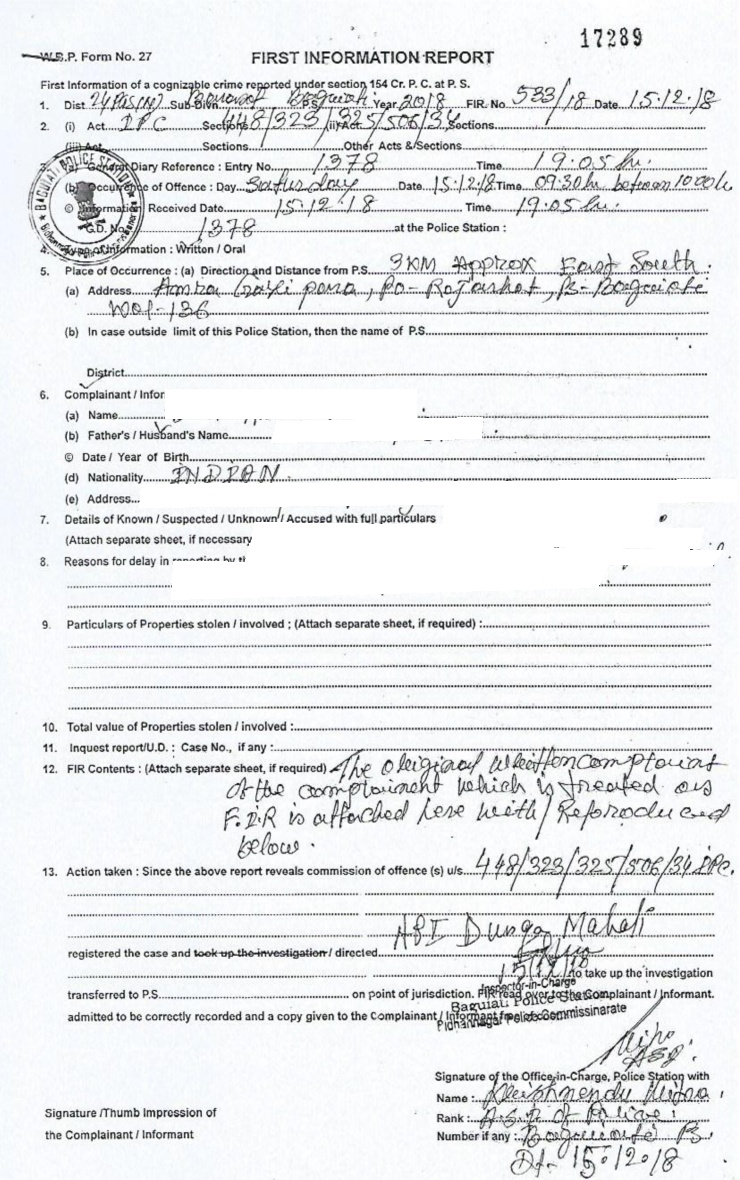 17289
W.B.P. Form No. 27
FIRST INFORMATION REPORT
First Information of a cognizable crime reported under section 154 Cr. P. C. at P. S.
1. Dist 24 Sub Divn. P.S. Year 2018 FIR. No. 533/18 Date 15.12.18
2. (i) Act IPC Sections 448/323/325/506/34 (ii) Act Sections
(iii) Act Sections Other Acts & Sections
3. (a) General Diary Reference : Entry No. 1378 Time 19.05 hr.
(b) Occurrence of Offence : Day Saturday Date 15.12.18 Time 09:30 hr between 10:00 h
© Information Received Date 15.12.18 Time 19.05 hr.
G.D. No. 1378 at the Police Station :
4. Type of Information : Written / Oral
BAGUIATI POLICE STATION
5. Place of Occurrence : (a) Direction and Distance from P.S. 3KM Approx East South.
(a) Address
Wol-136
(b) In case outside limit of this Police Station, then the name of P.S.
District
6. Complainant / Infor
(a) Name
(b) Father's / Husband's Name
© Date / Year of Birth
(d) Nationality INDIAN
(e) Address...
7. Details of Known / Suspected / Unknown / Accused with full particulars
(Attach separate sheet, if necessary
8. Reasons for delay in reporting by th
9. Particulars of Properties stolen / involved ; (Attach separate sheet, if required) :
10. Total value of Properties stolen / involved :
11. Inquest report/U.D. : Case No., if any :
12. FIR Contents : (Attach separate sheet, if required) The original written complaint
of the complainent which is treated as
F.I.R is attached here with / Reproduced
below.
13. Action taken : Since the above report reveals commission of offence (s) u/s 448/323/325/506/34 IPC.
ASI Durga Mahali
registered the case and took up the investigation / directed
15/12/18 to take up the investigation
Inspector-in-Charge
transferred to P.S. on point of jurisdiction. FIR read over to the Complainant / Informant.
Baguiati Police Station
admitted to be correctly recorded and a copy given to the Complainant / Informant free of cost
Bidhannagar Police Commissinarate
ASI.
Signature of the Office-in-Charge, Police Station with
Name : Krishnendu Mitra
Signature /Thumb Impression of
Rank : A.S.I of Police.
the Complainant / Informant
Number if any : Baguiati PS.
Dt- 15.12.18